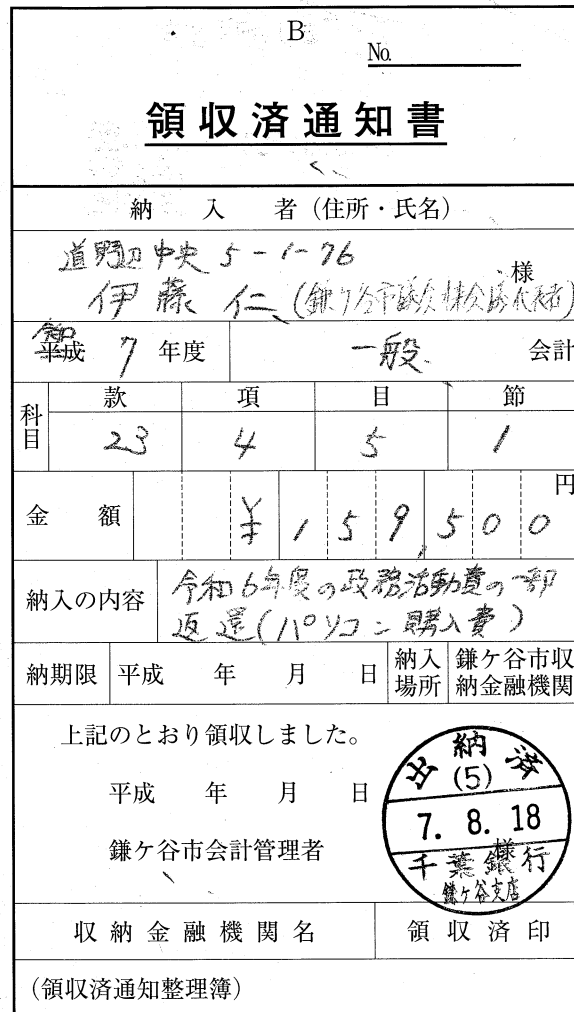 B
No.
領収済通知書
納入者（住所・氏名）
道野辺中央 5-1-76
伊藤 仁（鎌ケ谷市議会 代表者） 様
平成 令和 7 年度 一般 会計
科目 款 項 目 節
23 4 5 1
金額 ￥159,500 円
納入の内容 令和6年度の政務活動費の一部
返還（パソコン購入費）
納期限 平成 年 月 日 納入場所 鎌ケ谷市収納金融機関
上記のとおり領収しました。
平成 年 月 日
鎌ケ谷市会計管理者 様
出納済
(5)
7. 8. 18
千葉銀行
鎌ケ谷支店
収納金融機関名 領収済印
（領収済通知整理簿）